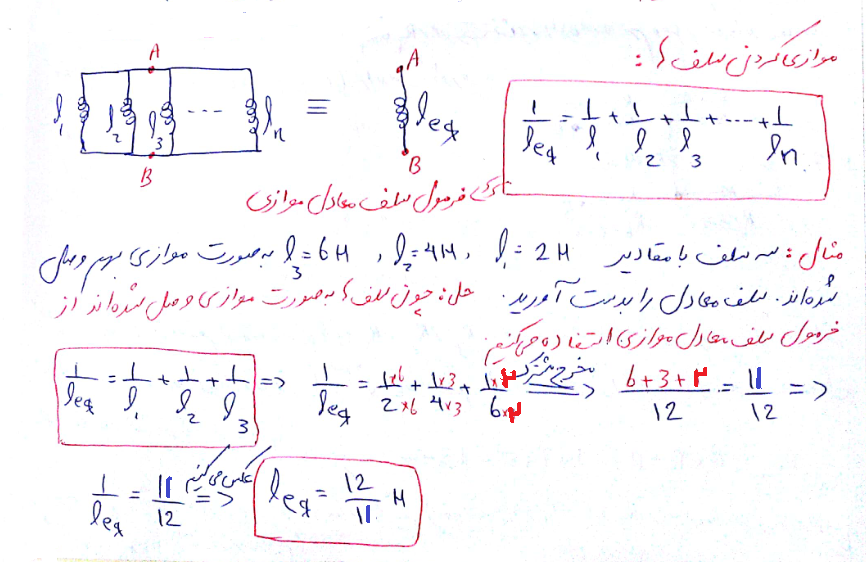 موازی کردن سلف ها :
A A
l₁ l₂ l₃ ---- lₙ ≡ leq
B B
1/leq = 1/l₁ + 1/l₂ + 1/l₃ + ---- + 1/lₙ
فرمول سلف معادل موازی
مثال : سه سلف با مقادیر l₁ = 2H ، l₂ = 4H ، l₃ = 6H به صورت موازی بهم وصل
شده اند. سلف معادل را بدست آورید. حل: چون سلف ها به صورت موازی وصل شده اند از
فرمول سلف معادل موازی استفاده می کنیم
1/leq = 1/l₁ + 1/l₂ + 1/l₃ => 1/leq = 1×6/2×6 + 1×3/4×3 + 1×۲/6×۲ مخرج مشترک => 6+3+۲/12 = 11/12 =>
1/leq = 11/12 عکس می کنیم => leq = 12/11 H